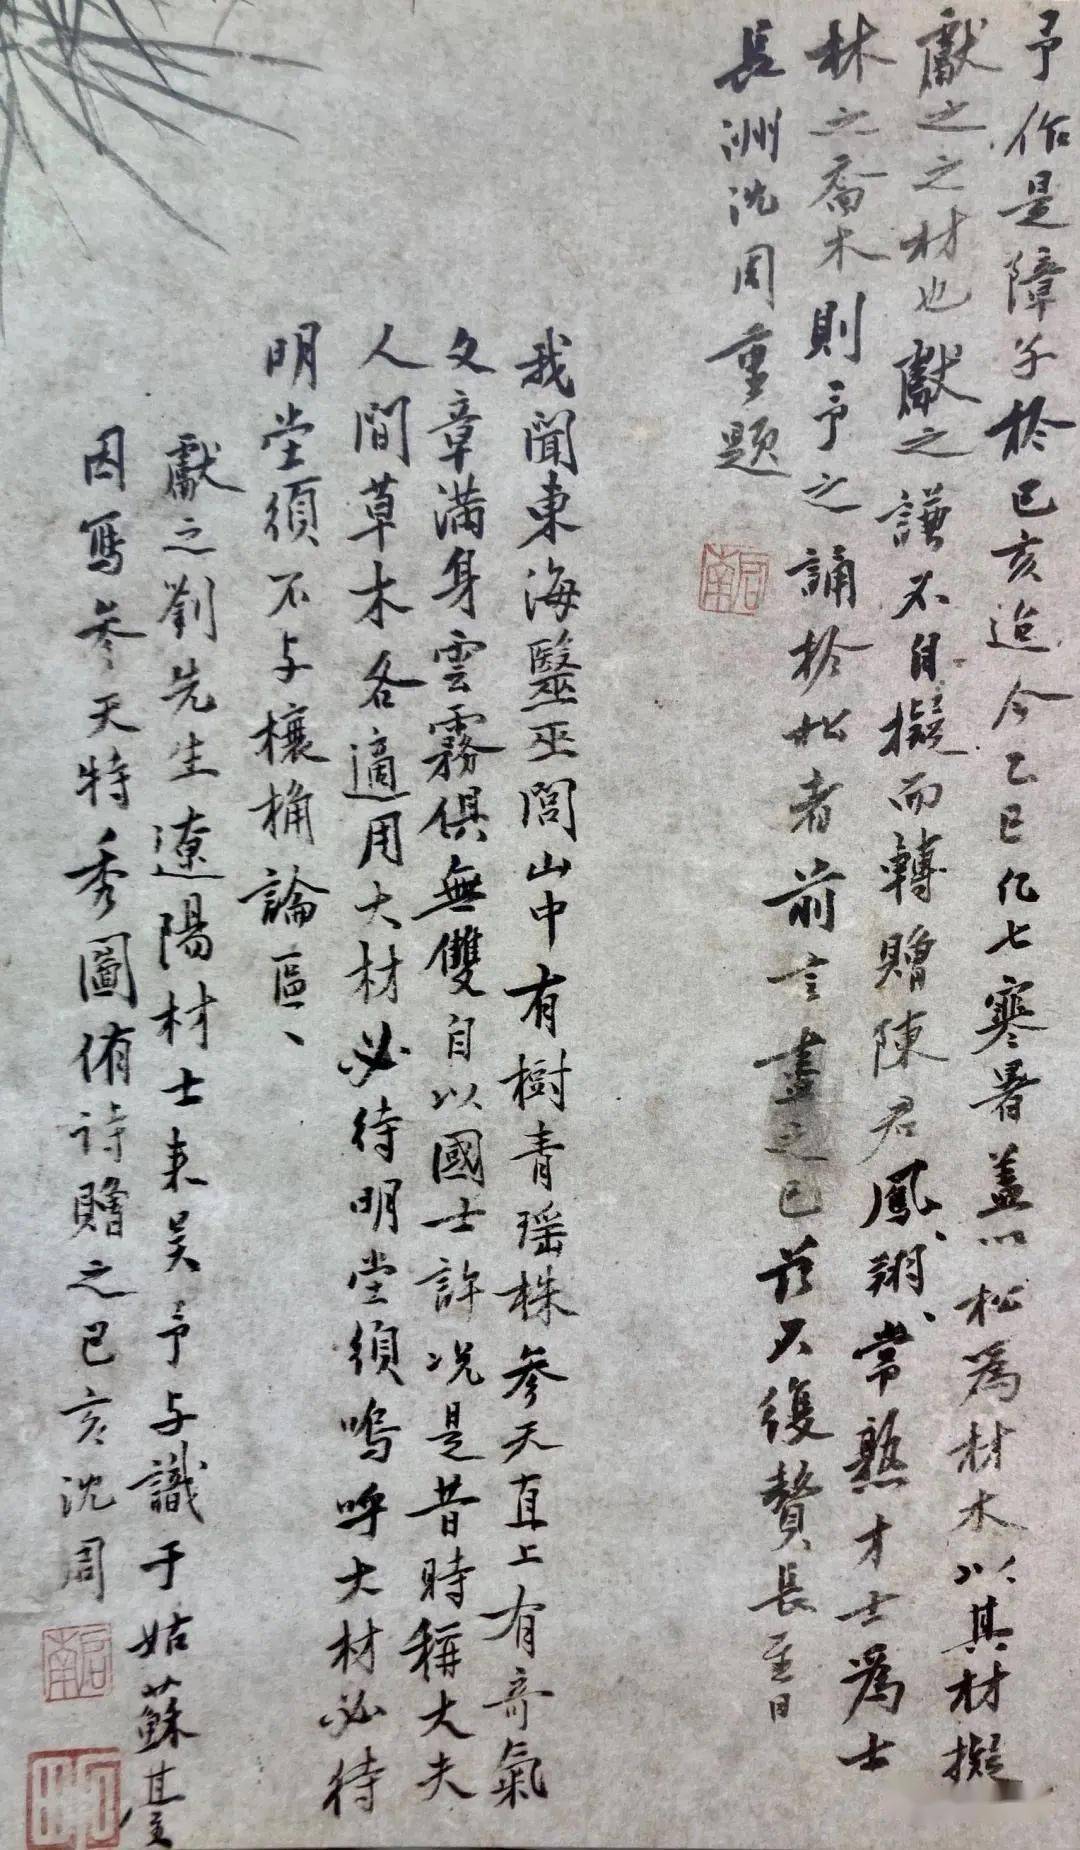 予作是障子於己亥迨今乙巳凡七寒暑蓋以松為材木以其材擬
獻之之材也獻之謙不自擬而轉贈陳君鳳翔常熟才士為士
林之喬木則予之誦於松者前言盡之已茲不復贅長至日
長洲沈周重題
啟南
我聞東海醫巫閭山中有樹青瑤株參天直上有奇氣
文章滿身雲霧俱無雙自以國士許況是昔時稱大夫
人間草木各適用大材必待明堂須嗚呼大材必待
明堂須不与欀桷論區、
獻之劉先生遼陽材士來吴予与識于姑蘇臺
因寫參天特秀圖侑詩贈之己亥沈周
啟南